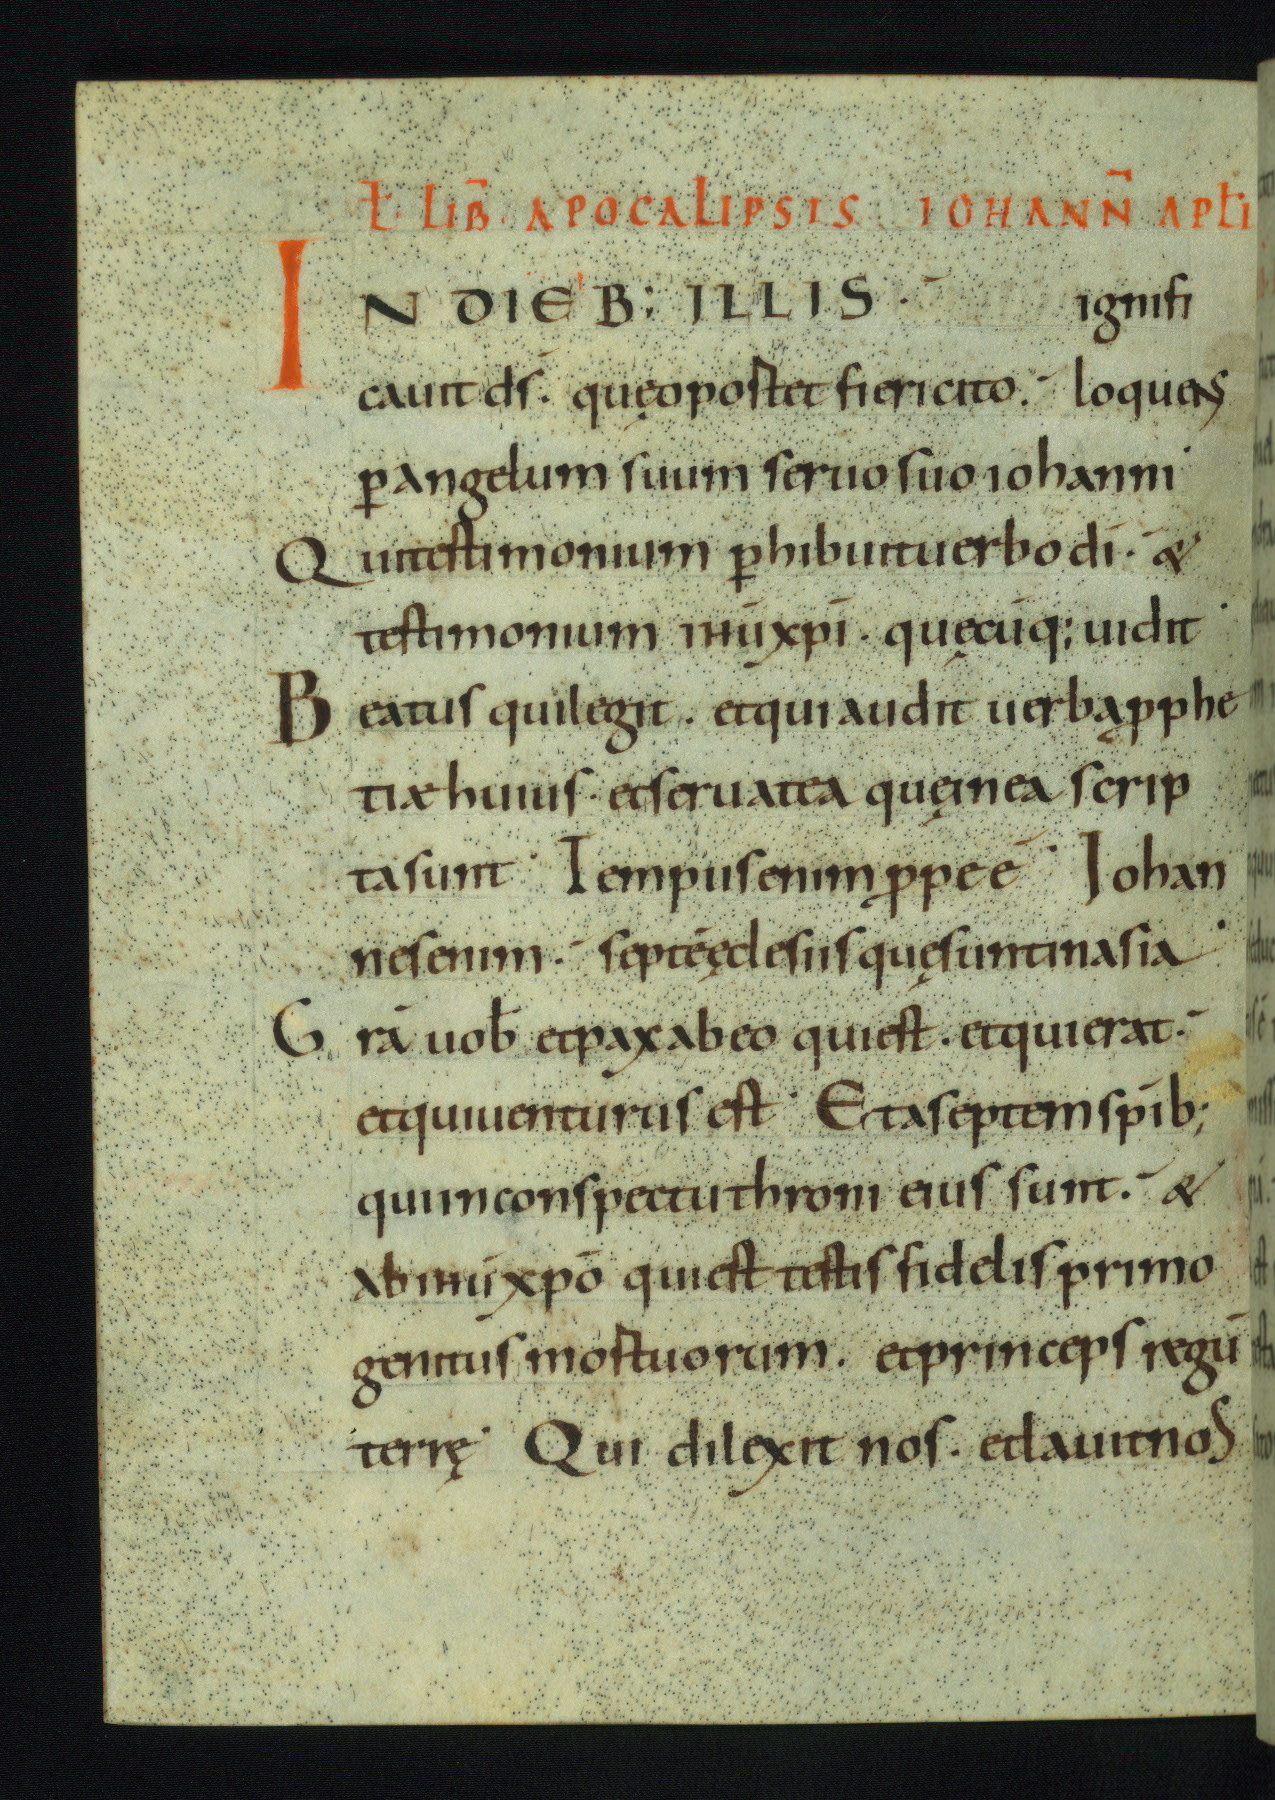 Ł· LIB̄ APOCALIPSIS IOHANN̄ APŁI
IN DIEB; ILLIS · ignifi
cauit ds̄. quę oportet fieri cito. loquens
ꝑ angelum suum seruo suo iohanni
Qui testimonium ꝑhibuit uerbo dī. &
testimonium ihū xpī. quęcūq; uidit
Beatus qui legit. et qui audit uerba ꝓphe
tiæ huius. et seruat ea quę in ea scrip
ta sunt Tempus enim ꝓpe ē Iohan
nes enim. septē ęclesiis quę sunt in asia
Grā uob̄ et pax ab eo qui est. et qui erat.
et qui uenturus est Et a septem spīb;
qui in conspectu throni eius sunt. &
ab ihū xpō qui est testis fidelis primo
genitus mortuorum. et princeps regū
terrę Qui dilexit nos. et lauit nos